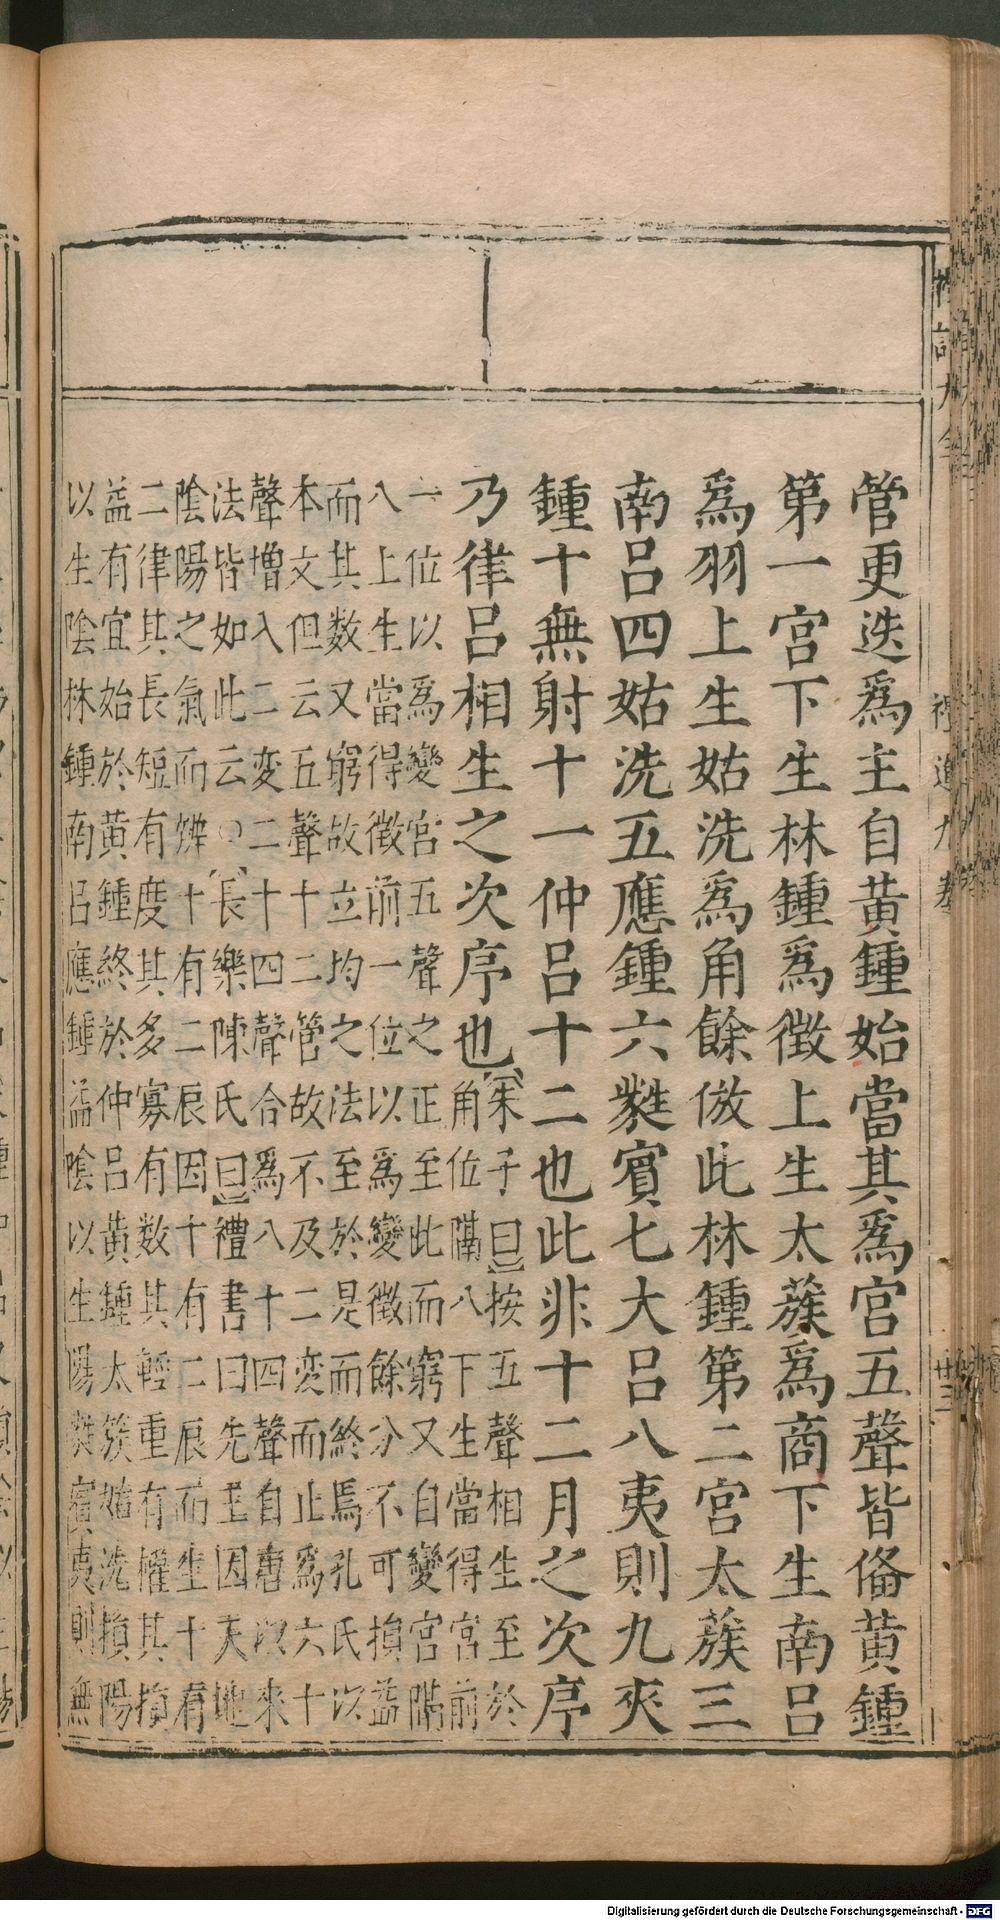 管更迭爲主自黃鍾始當其爲宮五聲皆俻黃鍾
第一宮下生林鍾爲徵上生太蔟爲商下生南呂
爲羽上生姑洗爲角餘倣此林鍾第二宮太蔟三
南呂四姑洗五應鍾六蕤賓七大呂八夷則九夾
鍾十無射十一仲呂十二也此非十二月之次序
乃律呂相生之次序也
朱子曰按五聲相生至於
角位隔八下生當得宮前
一位以爲變宮五聲之正至此而窮又自變宮隔
八上生當得徵前一位以爲變徵餘分不可損益
而其数又窮故立均之法至於是而終焉孔氏以
本文但云五聲十二管故不及二変而止爲六十
聲增入二変二十四聲合爲八十四聲自唐以來
法皆如此云〇長樂陳氏曰禮書曰先王因天地
陰陽之氣而辨十有二辰因十有二辰而生十有
二律其長短有度其多寡有数其輕重有權其損
益有宜始於黃鍾終於仲呂黃鍾太簇姑洗損陽
以生陰林鍾南呂應鍾益陰以生陽蕤賓夷則無
禮運九卷
廿三
Digitalisierung gefördert durch die Deutsche Forschungsgemeinschaft - DFG